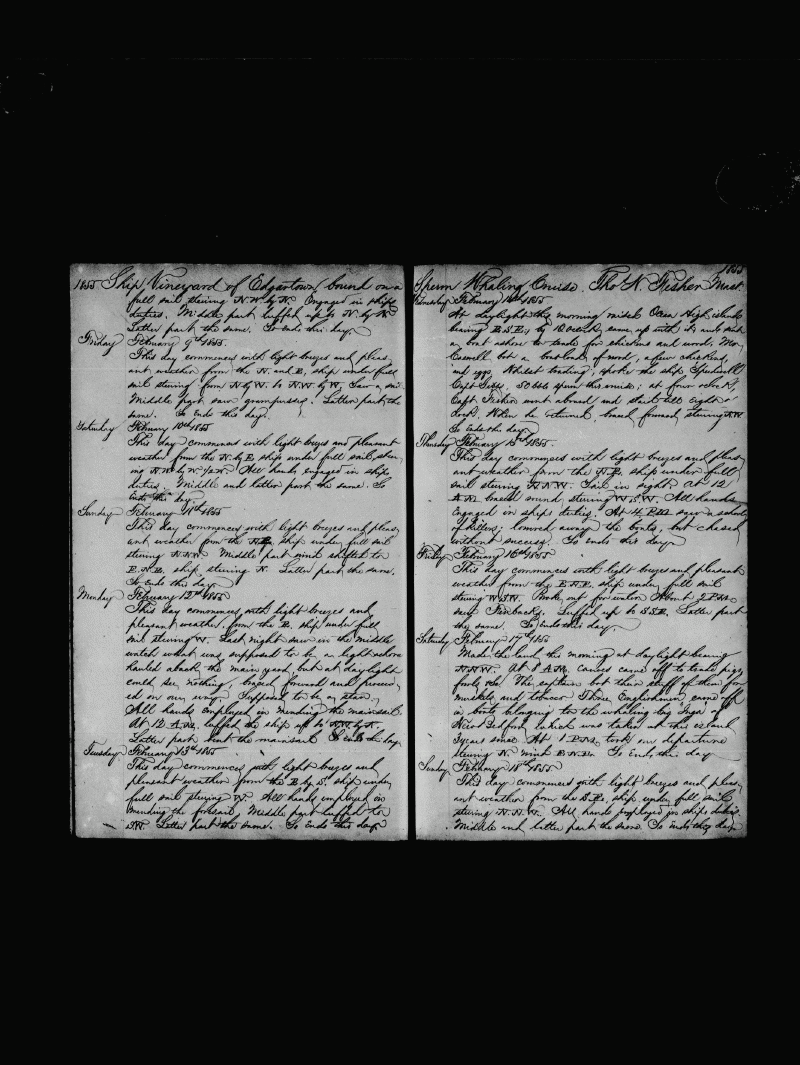 1855 Ship Vineyard of Edgartown, bound on a
full sail steering N.W. by N. Engaged in ships
duties. Middle part luffed up to N. by W.
Latter part the same. So ends this day.
Friday February 9th 1855.
This day commences with light breezes and pleas
ant weather from the N. and E, ship under full
sail steering from N by W. to N.W. by W. Saw a sail
Middle part saw grampusses. Latter part the
same. So ends this day.
Saturday February 10th 1855
This day commences with light breezes and pleasant
weather from the N. by E. ship under full sail, steer
ing N.W. by W. 1/2 W. All hands engaged in ships
duties. Middle and latter part the same. So
ends this day.
Sunday February 11th 1855
This day commences with light breezes and pleas
ant weather from the ship under full sail
steering N.N.W. Middle part wind shifted to
E.N.E. ship steering N. Latter part the same.
So ends this day.
Monday February 12th 1855
This day commences with light breezes and
pleasant weather, from the E. ship under full
sail steering W. Last night saw in the middle
watch what was supposed to be a light ashore
hauled aback the main yard, but at daylight
could see nothing, braced forward and proceed
ed on our way. Supposed to be a star.
All hands employed in mending the mainsail.
At 12 A.M. luffed the ship up to
Latter part bent the mainsail. So ends this day
Tuesday February 13th 1855
This day commences with light breezes and
pleasant weather from the E by S. ship under
full sail steering W. All hands employed in
mending the foresail, Middle part luffed to
Latter part the same. So ends this day
1855
Sperm Whaling Cruise. Tho N. Fisher Mast
February 14th 1855
At daylight this morning raised Ocean High islands
bearing by 10 oclock, came up with it and sent
a boat ashore to trade for chickens and wood; Mr
got a boatload of wood, a few chickens,
and eggs. Whilst trading, spoke the ship Speedwell
Capt Gibbs, 50 bbls sperm this cruise; at four oclock,
Capt. Fisher went aboard and staid till eight o
clock. When he returned, braced forward, steering N.W
So ends this day
Thursday February 15th 1855.
This day commences with light breezes and pleas
ant weather from the N.E. ship under full
sail steering N.N.W. Sail in sight. At 12
A.M. braced round, steering W.S.W. All hands
engaged in ships duties. At 4 P.M. saw a school
of killers; lowered away the boats, but chased
without success. So ends this day
Friday February 16th 1855.
This day commences with light breezes and pleasant
weather from the E.N.E. ship under full sail
steering W.S.W. Broke out for water. About 2 P.M.
saw Finbacks. Luffed up to Latter part
the same. So ends this day.
Saturday February 17th 1855
Made the land, this morning at daylight bearing
N.N.W. At 8 A.M. Canoes came off to trade pigs,
fowls &c. The captain bot their stuff of them for
muskets, and tobacco. Three Englishmen, came off
in boats belonging to the whaling brig Inga of
New Bedford, which was taken at this island
3 years since. At 1 P.M. took our departure
steering N. wind E.N.E. So ends this day
Sunday February 18th 1855.
This day commences with light breezes and pleas
ant weather from the ship under full sail
steering N.N.W. All hands employed in ships duties
Middle and latter part the same So ends this day